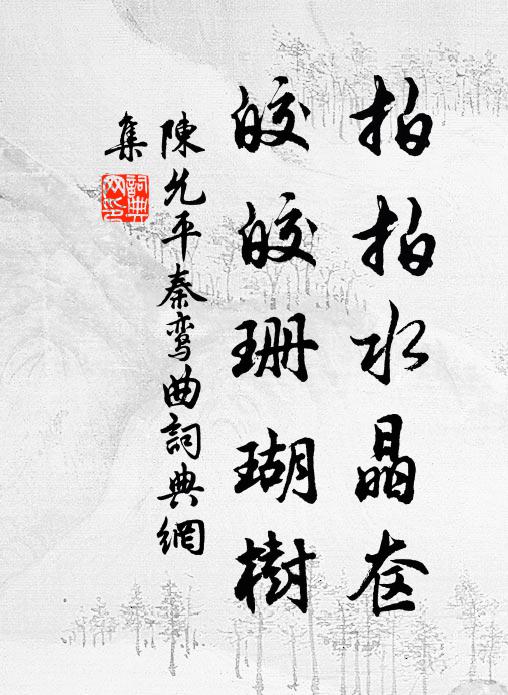 拍拍水晶奁
皎皎珊瑚樹
陳允平秦鸞曲詞典網
集
詞典
网印